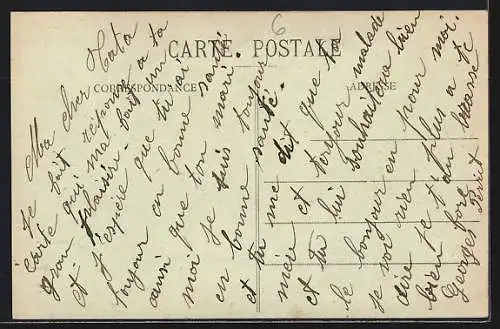 6
CARTE POSTALE
CORRESPONDANCE
ADRESSE
Ma cher Tata
Je fait réponse a ta
carte qui ma fait un
grand plaisire
et j'espère que tu ai
toujour en bonne santé
ainsi que ton mari
moi je suis toujour
en bonne santé.
et tu me dit que ta
mère et toujour malade
et tu lui souhaitera bien
le bonjour en pour moi.
je voi rien plus a te
dire je t'an brasse
bien fore
Georges Perret